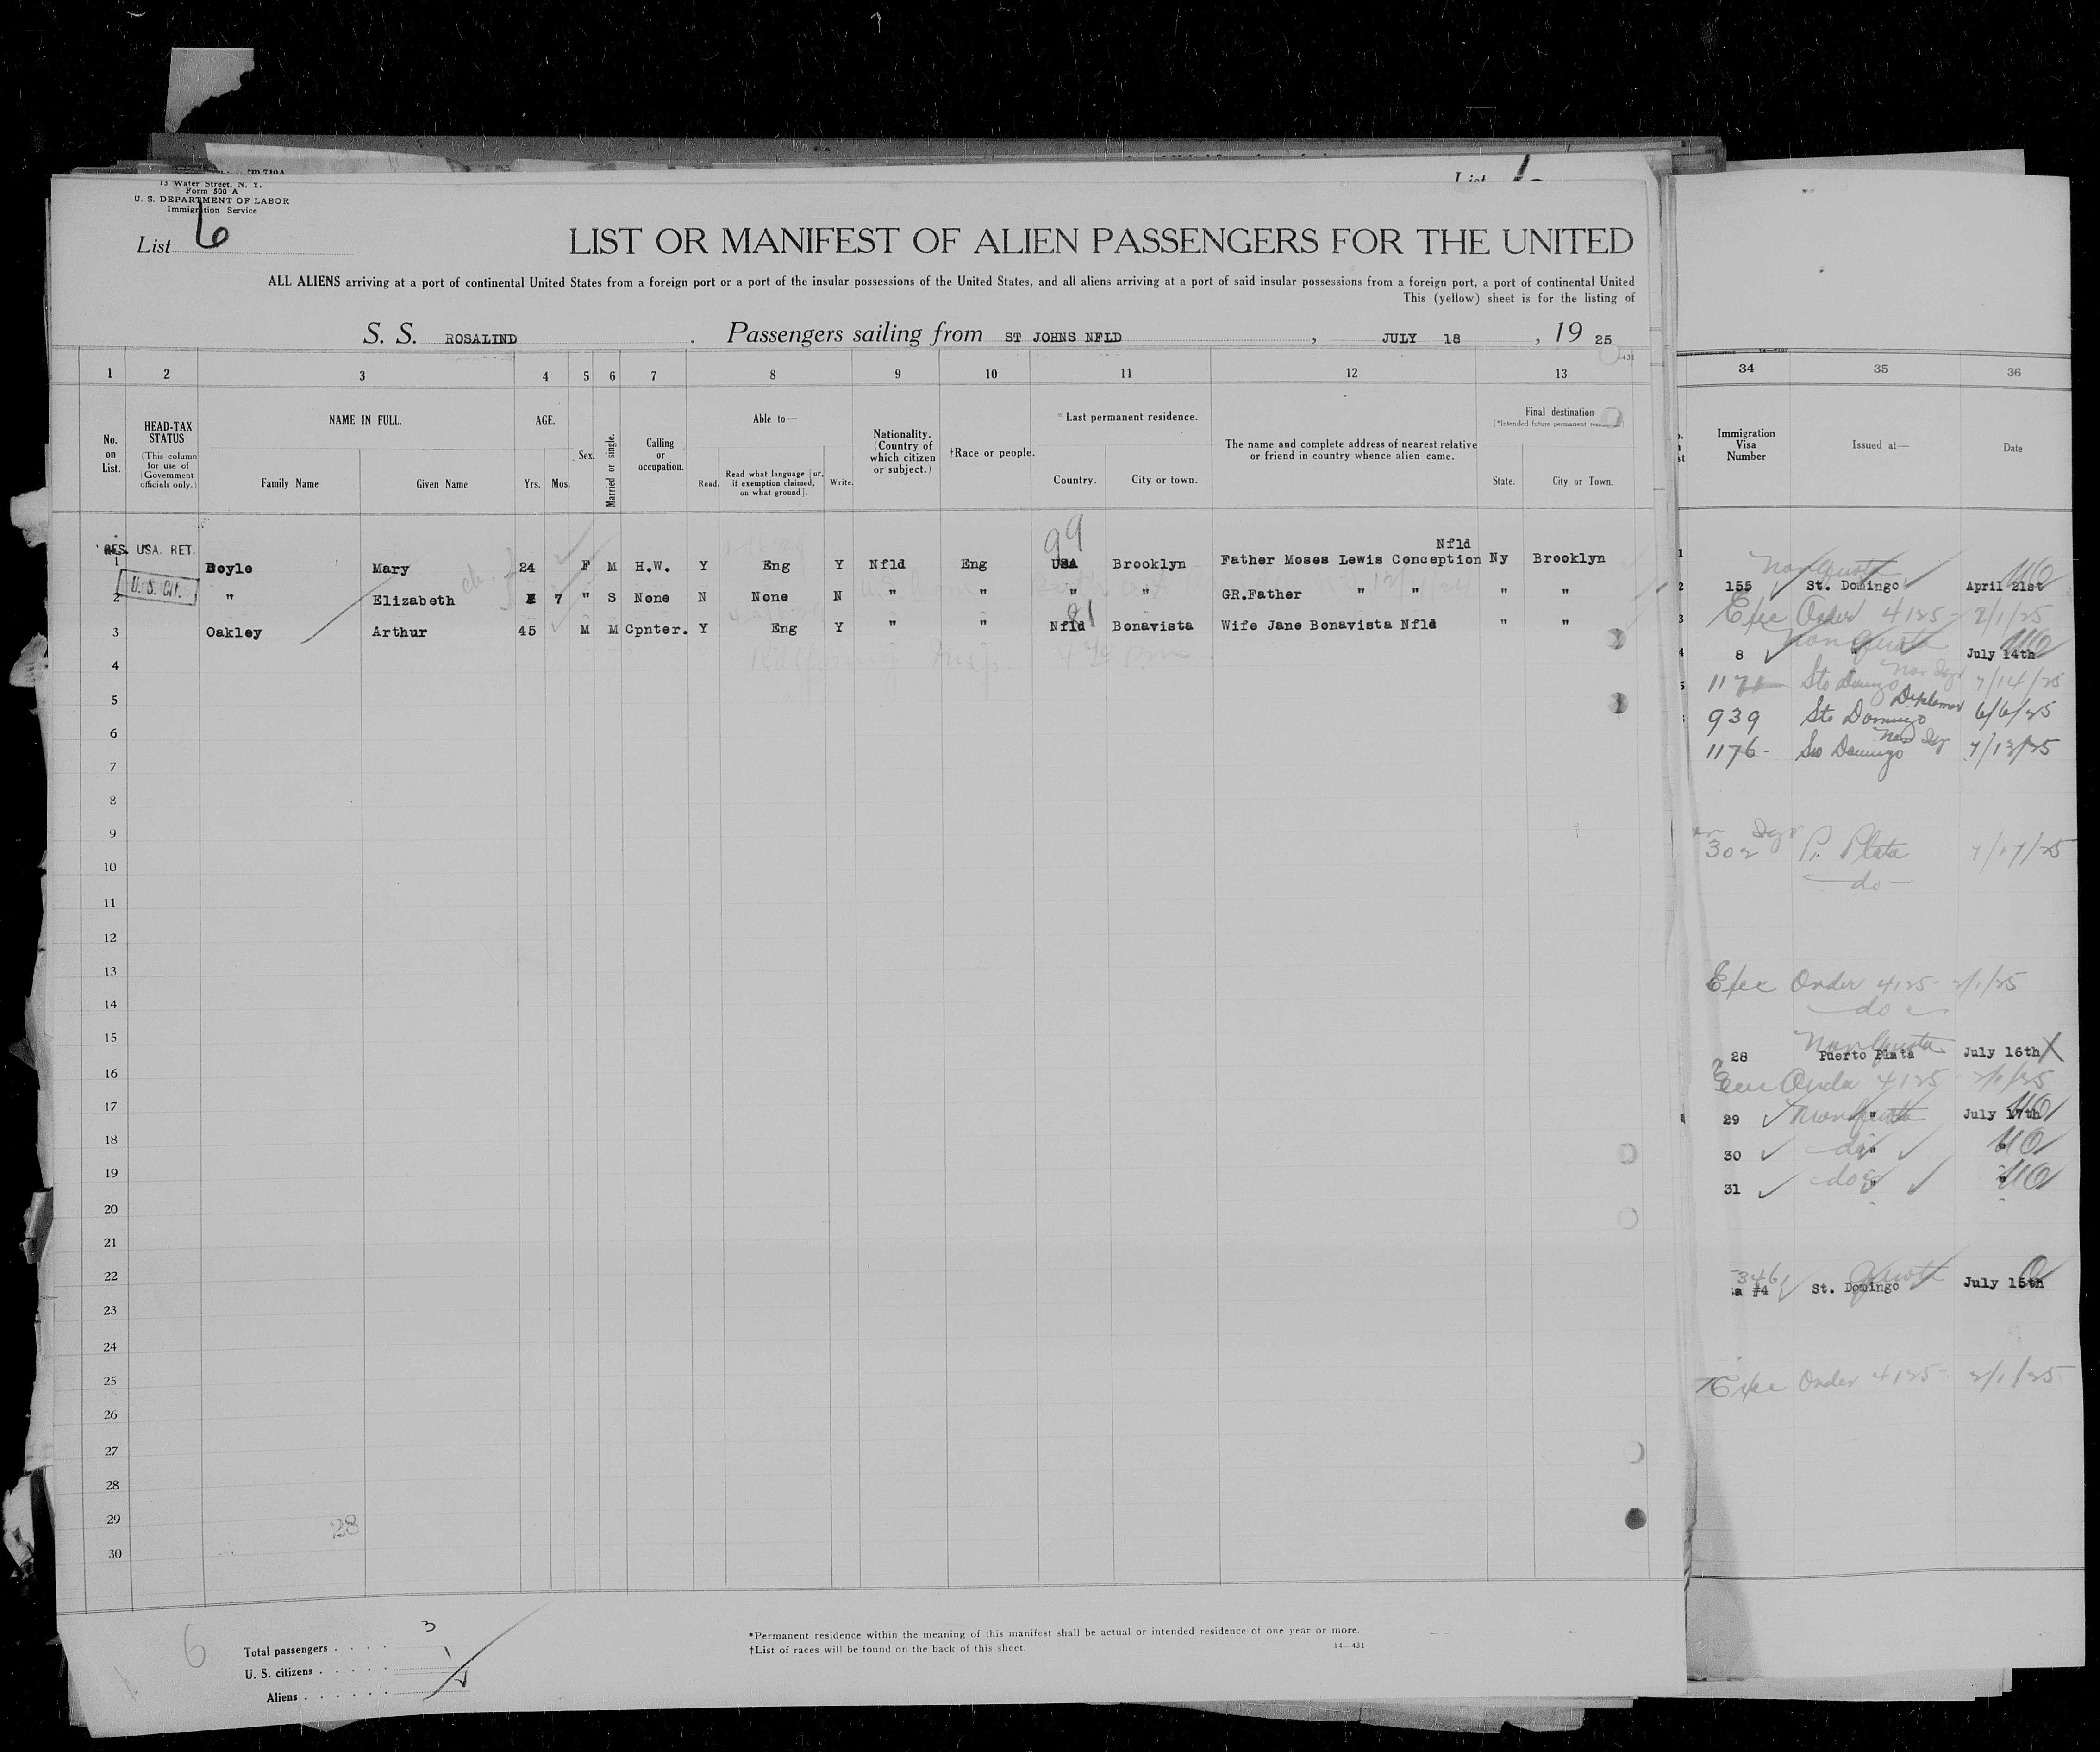 13 Water Street, N. Y.
Form 500 A
U. S. DEPARTMENT OF LABOR
Immigration Service
List 6
LIST OR MANIFEST OF ALIEN PASSENGERS FOR THE UNITED
ALL ALIENS arriving at a port of continental United States from a foreign port or a port of the insular possessions of the United States, and all aliens arriving at a port of said insular possessions from a foreign port, a port of continental United
This (yellow) sheet is for the listing of
S. S. ROSALIND . Passengers sailing from ST JOHNS NFLD , JULY 18 , 19 25
1 2 3 4 5 6 7 8 9 10 11 12 13
No. on List.
HEAD-TAX STATUS
(This column for use of Government officials only.)
NAME IN FULL.
Family Name Given Name
AGE.
Yrs. Mos.
Sex.
Married or single.
Calling or occupation.
Able to—
Read. Read what language [or, if exemption claimed, on what ground]. Write.
Nationality. (Country of which citizen or subject.)
†Race or people.
* Last permanent residence.
Country. City or town.
The name and complete address of nearest relative or friend in country whence alien came.
Final destination
State. City or Town.
99
RES. USA. RET.
Nfld
1 Boyle Mary 24 F M H.W. Y Eng Y Nfld Eng USA Brooklyn Father Moses Lewis Conception Ny Brooklyn
U. S. CIT.
2 " Elizabeth 7 " S None N None N " " " " GR.Father " " " "
81
3 Oakley Arthur 45 M M Cpnter. Y Eng Y " " Nfld Bonavista Wife Jane Bonavista Nfld " "
4
5
6
7
8
9
10
11
12
13
14
15
16
17
18
19
20
21
22
23
24
25
26
27
28
29
28
30
6
Total passengers 3
U. S. citizens 1
Aliens
*Permanent residence within the meaning of this manifest shall be actual or intended residence of one year or more.
†List of races will be found on the back of this sheet. 14—431
34 35 36
Immigration Visa Number Issued at— Date
Nonquota
155 St. Domingo April 21st
Exec Order 4125 - 2/1/25
Nonquota
8 " July 14th
1171 Sto Domingo 7/14/25
Diplomat
939 Sto Domingo 6/6/25
1176 - Sto Domingo 7/13/25
302 P. Plata 7/17/25
do
Exec Order 4125 - 2/1/25
do
Nonquota
28 Puerto Plata July 16th
Exec Order 4125 - 2/1/25
29 Nonquota " July 17th
30 do "
31 do "
346
#4 St. Domingo Quota July 15th
Exec Order 4125 - 2/1/25